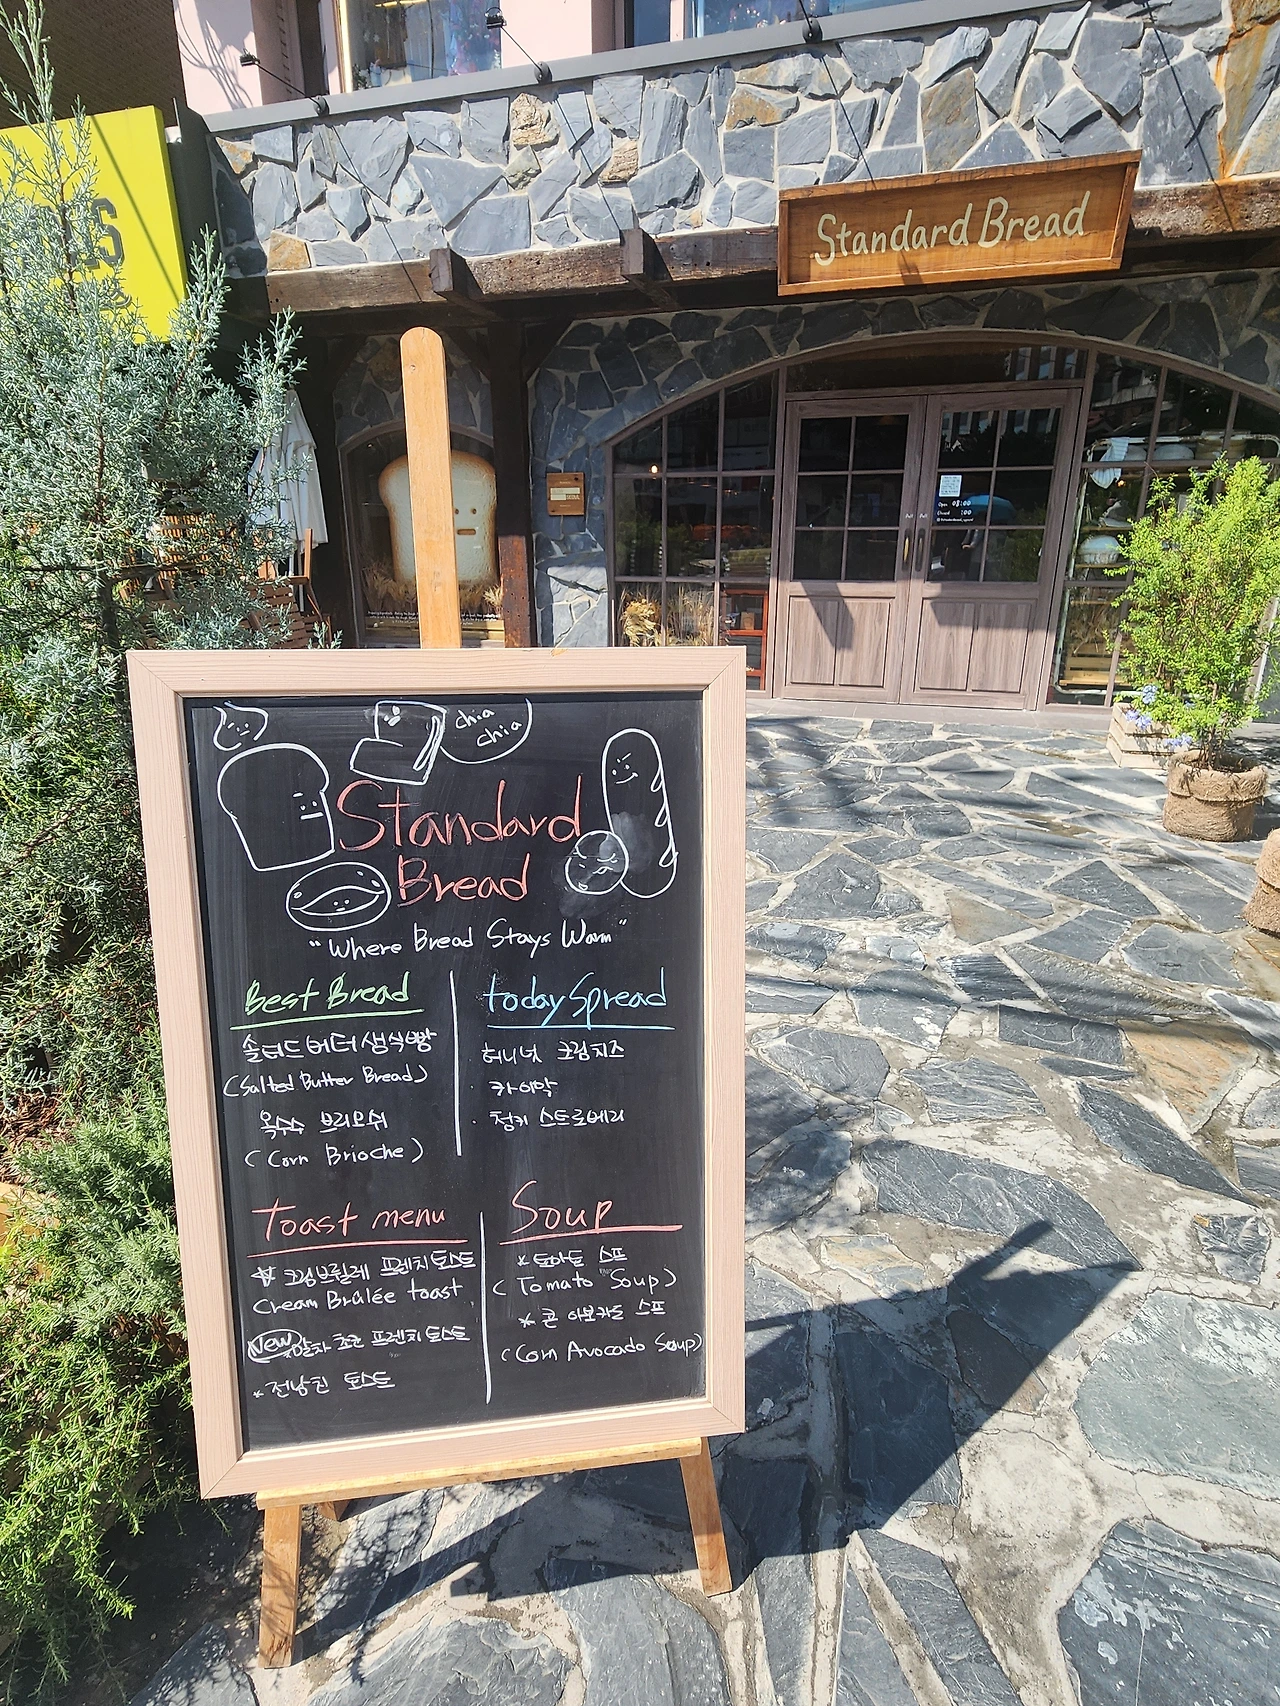 Standard Bread
chia
chia
Standard
Bread
"Where Bread Stays Warm"
Best Bread
솔티드버터생식빵
(Salted Butter Bread)
옥수수 브리오쉬
(Corn Brioche)
today Spread
· 허니넛 크림치즈
· 카이막
· 청키 스트로베리
Toast menu
크림브륄레 프렌치토스트
Cream Brûlée toast
New 말차 초코 프렌치토스트
* 전남친 토스트
Soup
* 토마토 스프
(Tomato Soup)
* 콘 아보카도 스프
(Corn Avocado Soup)